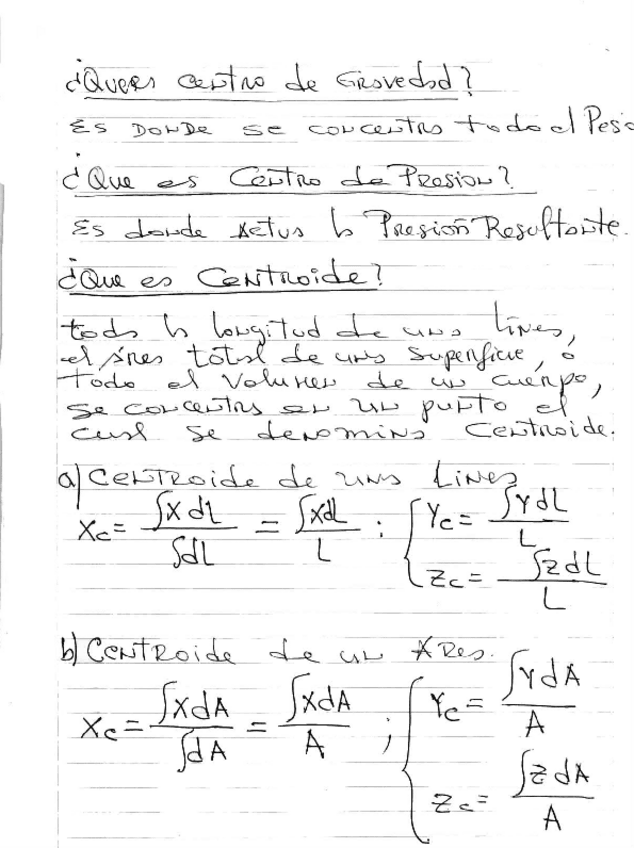 ¿Que es centro de Gravedad?
Es DONDE se concentra todo el Peso
¿Que es Centro de Presion?
Es donde Actua la Presión Resultante.
¿Que es CENTROide?
toda la longitud de una línea,
el área total de una superficie, o
Todo el Volumen de un cuerpo,
se concentra en un punto el
cual se denomina Centroide.
a) CENTROide de una Línea
Xc = ∫X dL / ∫dL = ∫XdL / L : { Yc = ∫YdL / L
Zc = ∫ZdL / L
b) CENTROide de un Area.
Xc = ∫XdA / ∫dA = ∫XdA / A ; { Yc = ∫YdA / A
Zc = ∫ZdA / A